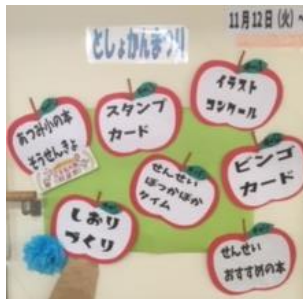 11月12日(火)~
としょかんまつり
あつみ小の本
そうせんきょ
スタンプ
カード
イラスト
コンクール
せんせい
ぽっかぽか
タイム
ビンゴ
カード
しおり
づくり
せんせい
おすすめの本